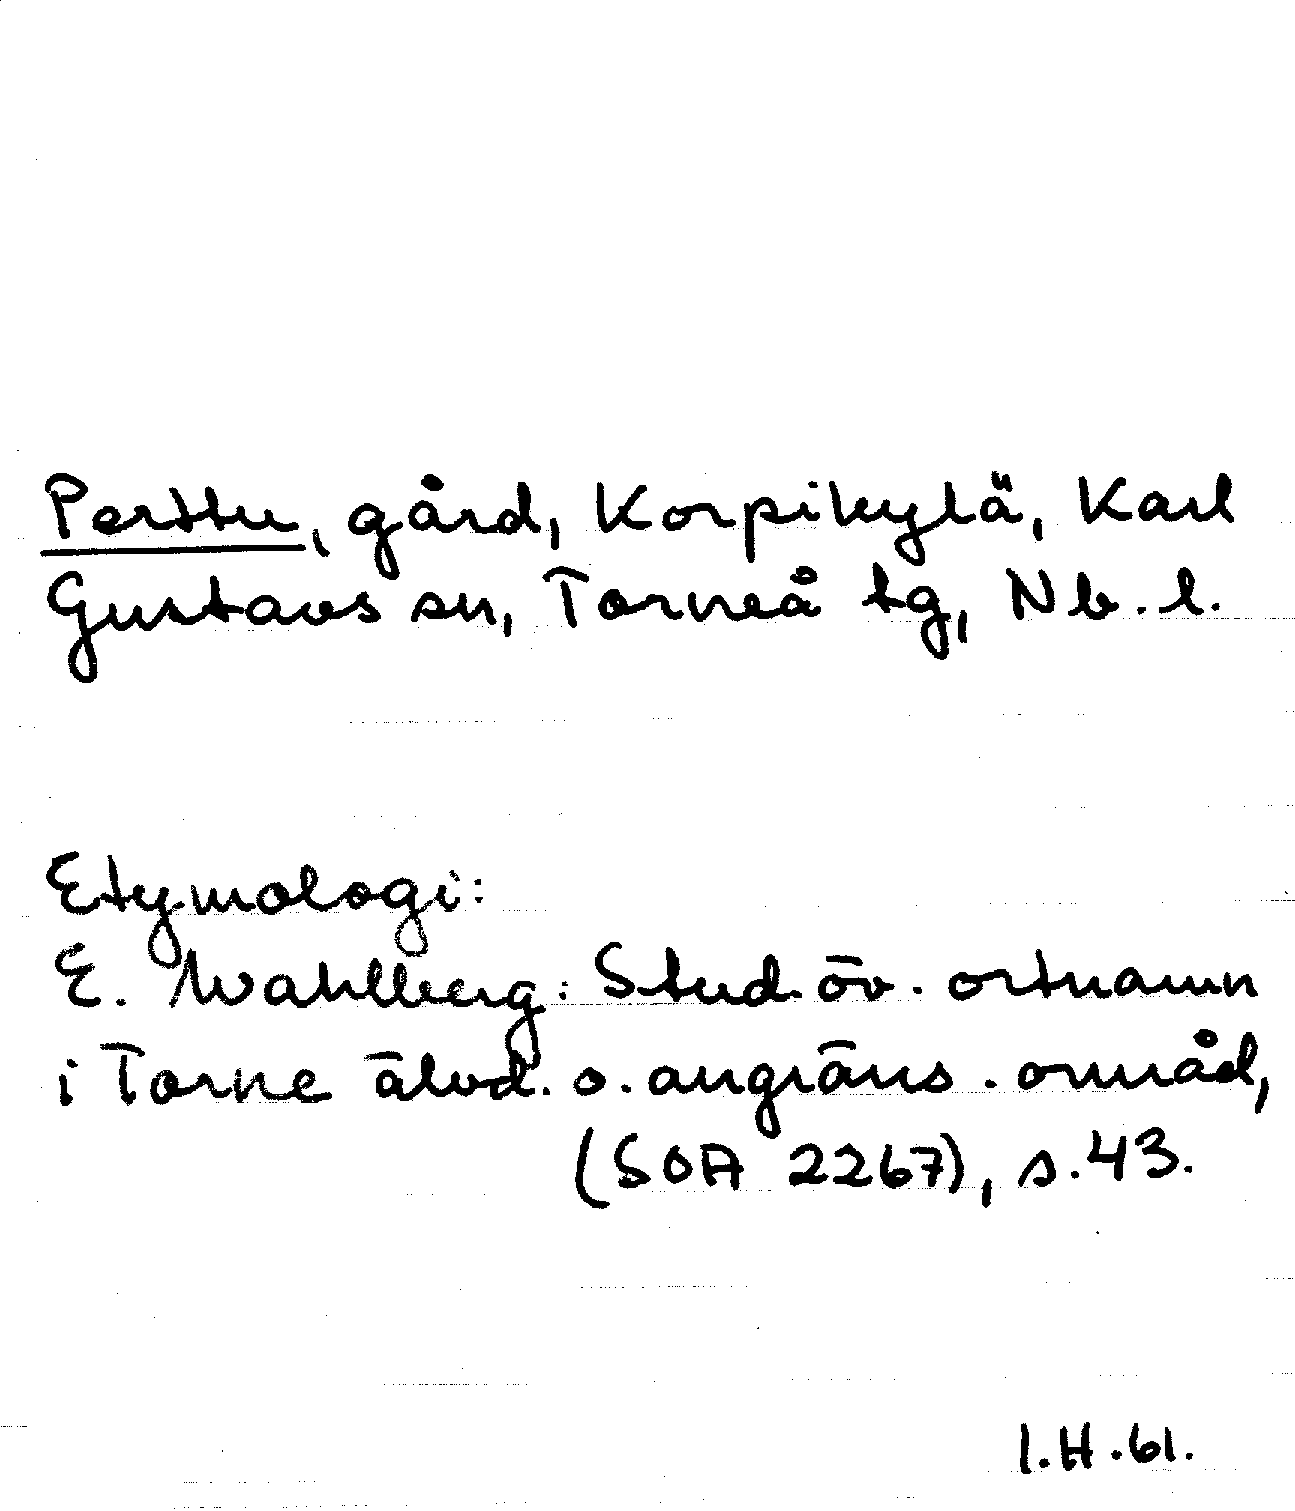 Perttu, gård, Korpikylä, Karl
Gustavs sn, Torneå tg, Nb. l.
Etymologi:
E. Wahlberg: Stud. öv. ortnamn
i Torne älvd. o. angräns. områd,
(SOA 2267), s. 43.
I.H.61.